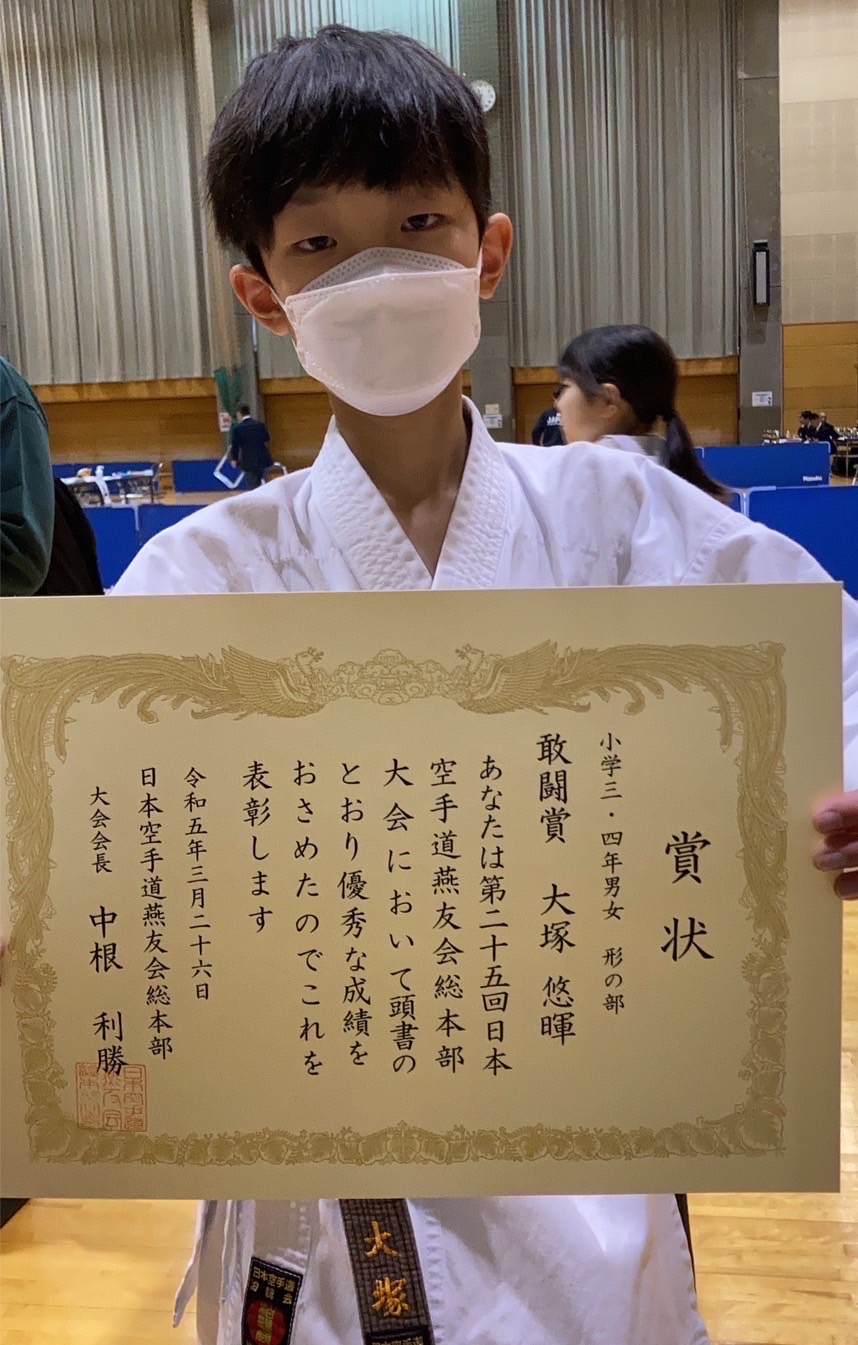 賞状
小学三・四年男女　形の部
敢闘賞　大塚　悠暉
あなたは第二十五回日本
空手道燕友会総本部
大会において頭書の
とおり優秀な成績を
おさめたのでこれを
表彰します
令和五年三月二十六日
日本空手道燕友会総本部
大会会長　中根　利勝
大塚
日本空手道